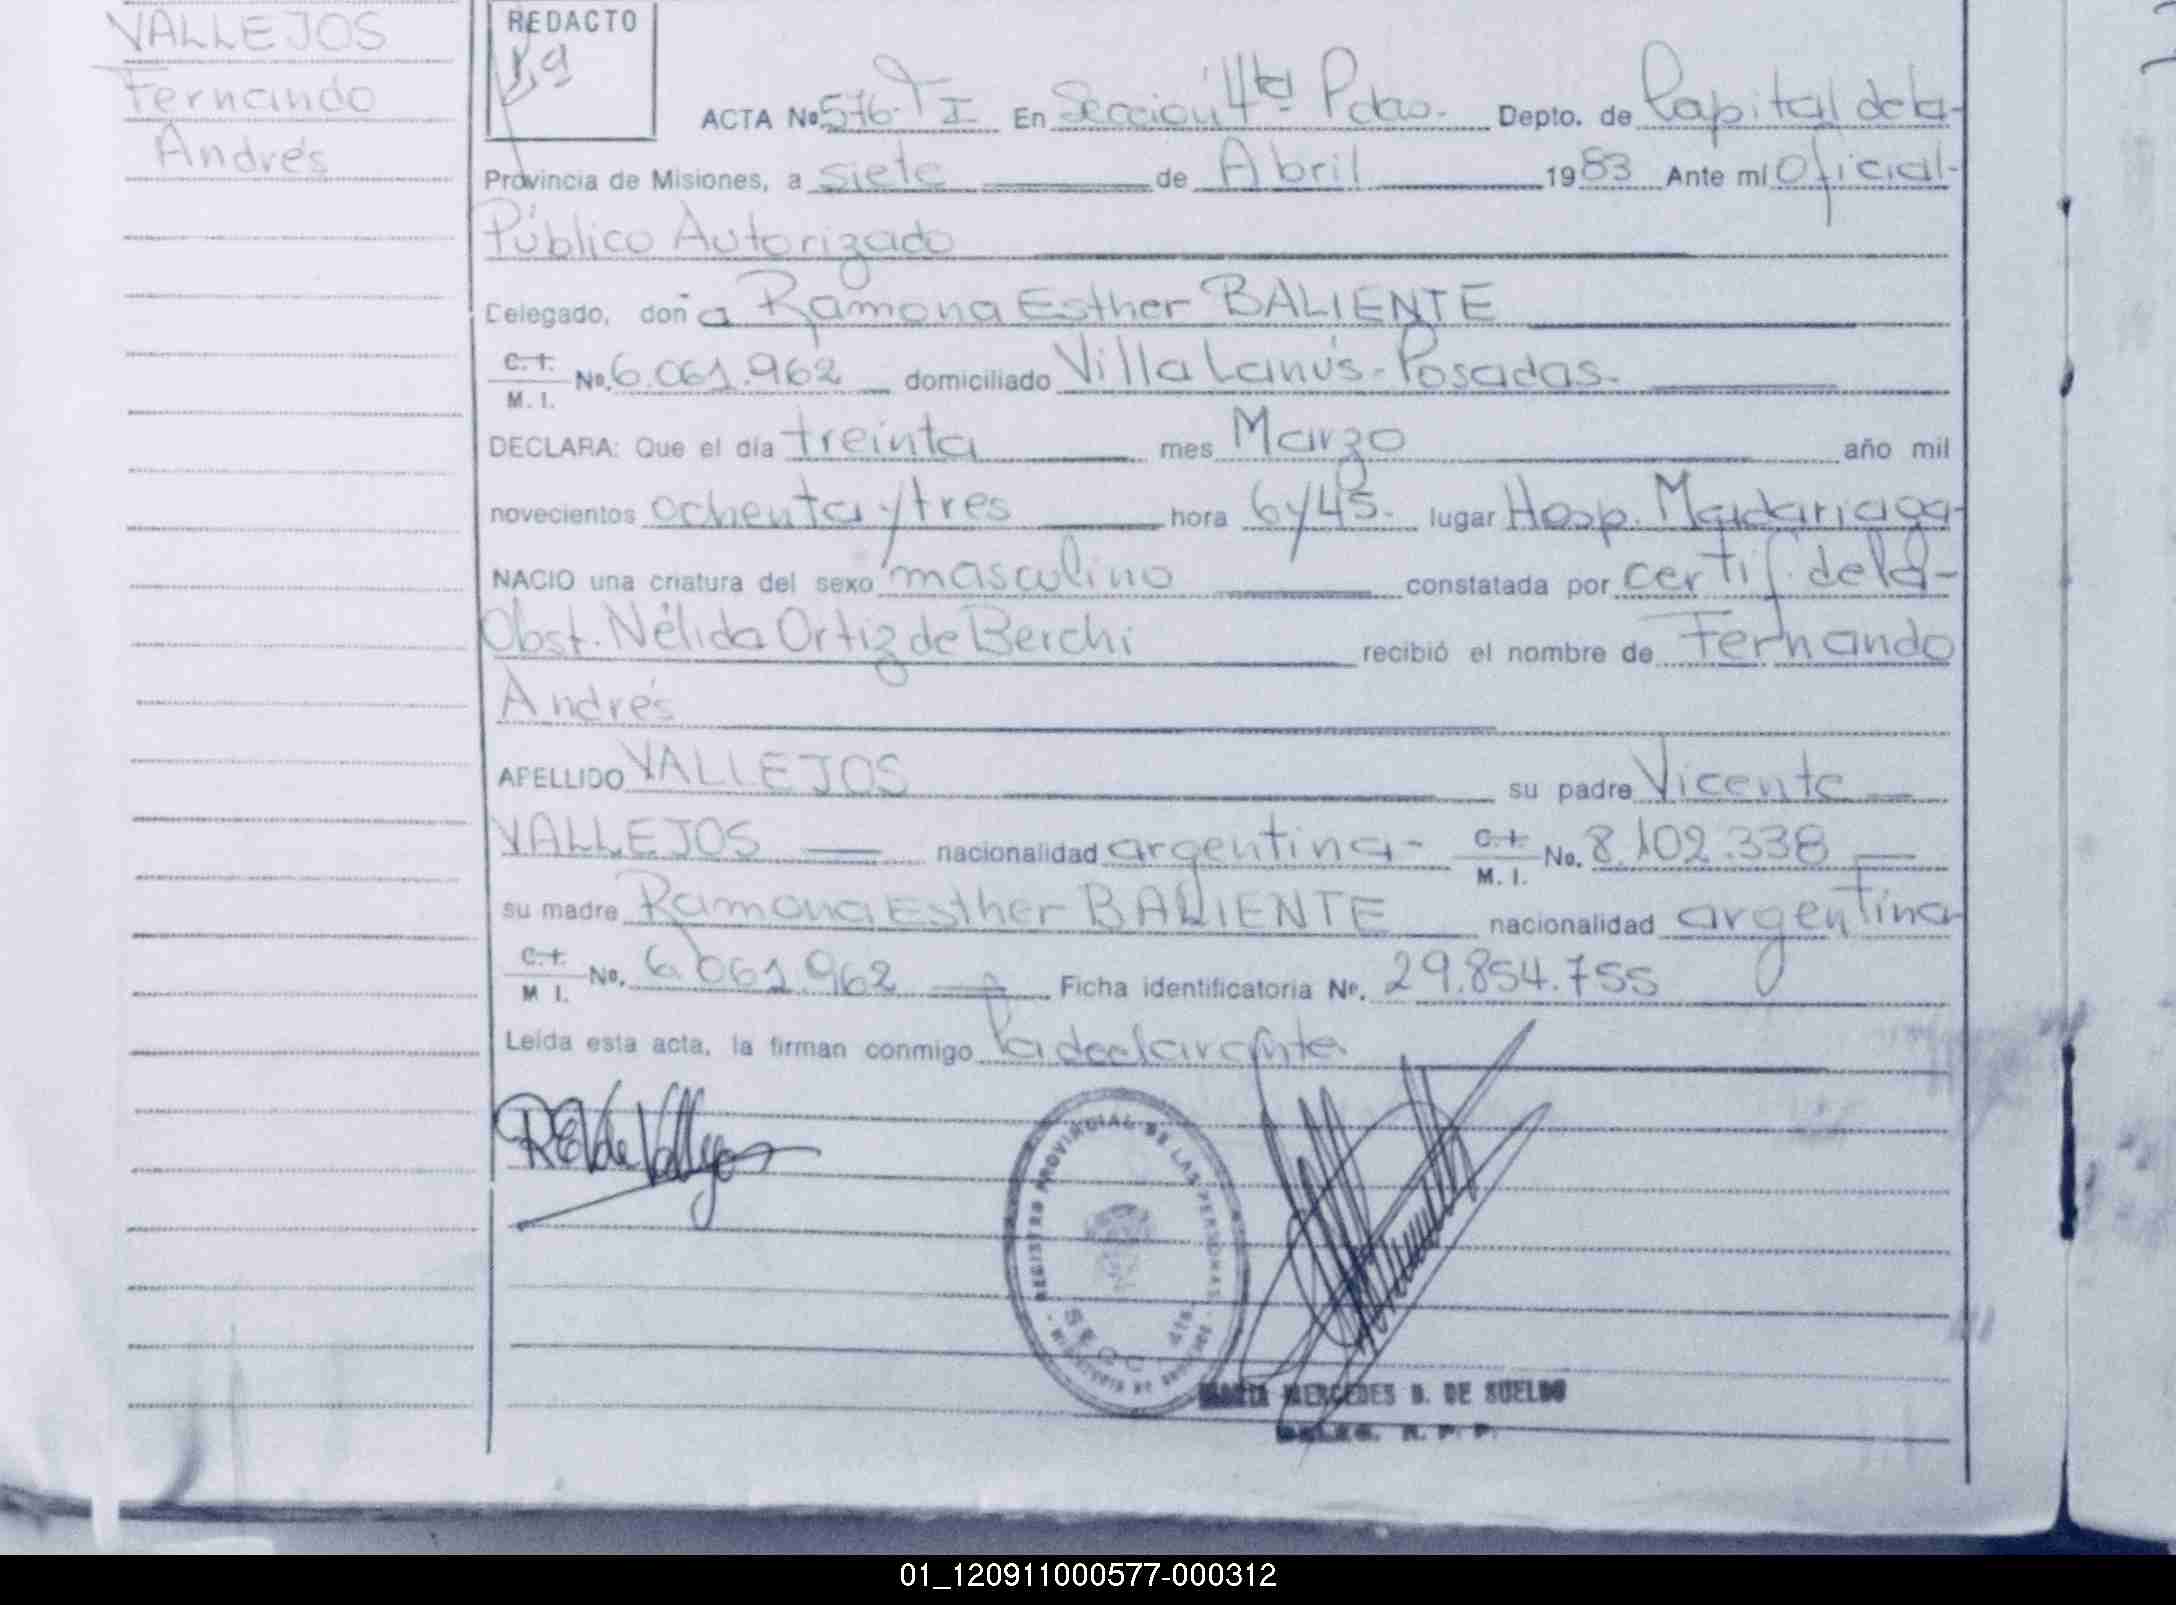 VALLEJOS
Fernando
Andrés
REDACTO
ACTA Nº 576-T I En Sección 4ta Pdas. Depto. de Capital de la
Provincia de Misiones, a siete de Abril 1983 Ante mí Oficial
Público Autorizado
Delegado, doña Ramona Esther BALIENTE
C.I. M.I. Nº. 6.061.962 domiciliado Villa Lanús-Posadas.
DECLARA: Que el día treinta mes Marzo año mil
novecientos ochenta y tres hora 6 y 45. lugar Hosp. Madariaga
NACIO una criatura del sexo masculino constatada por certif. de la
Obst. Nélida Ortiz de Berchi recibió el nombre de Fernando
Andrés
APELLIDO VALLEJOS su padre Vicente
VALLEJOS nacionalidad argentina- C.I. M.I. No. 8.102.338
su madre Ramona Esther BALIENTE nacionalidad argentina
C.I. M I. No. 6.061.962 Ficha identificatoria Nº. 29.854.755
Leída esta acta, la firman conmigo la declarante
REV de Vallejos
REGISTRO PROVINCIAL DE LAS PERSONAS
SECC. 4ta
MARIA MERCEDES B. DE SUELDO
DELEG. R. P. P.
01_120911000577-000312